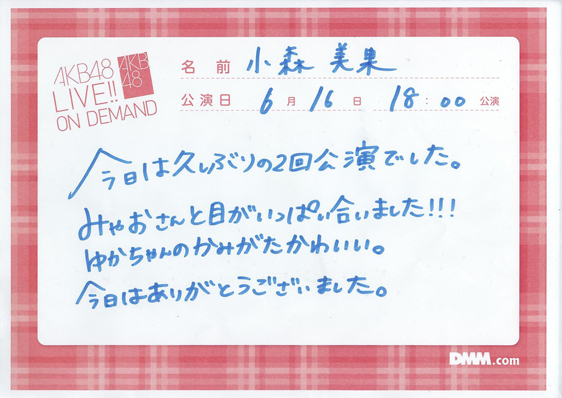 AKB48
LIVE!!
ON DEMAND
AKB
48
名前 小森 美果
公演日 6月16日 18:00公演
今日は久しぶりの2回公演でした。
みゃおさんと目がいっぱい合いました!!!
ゆかちゃんのかみがたかわいい。
今日はありがとうございました。
DMM.com